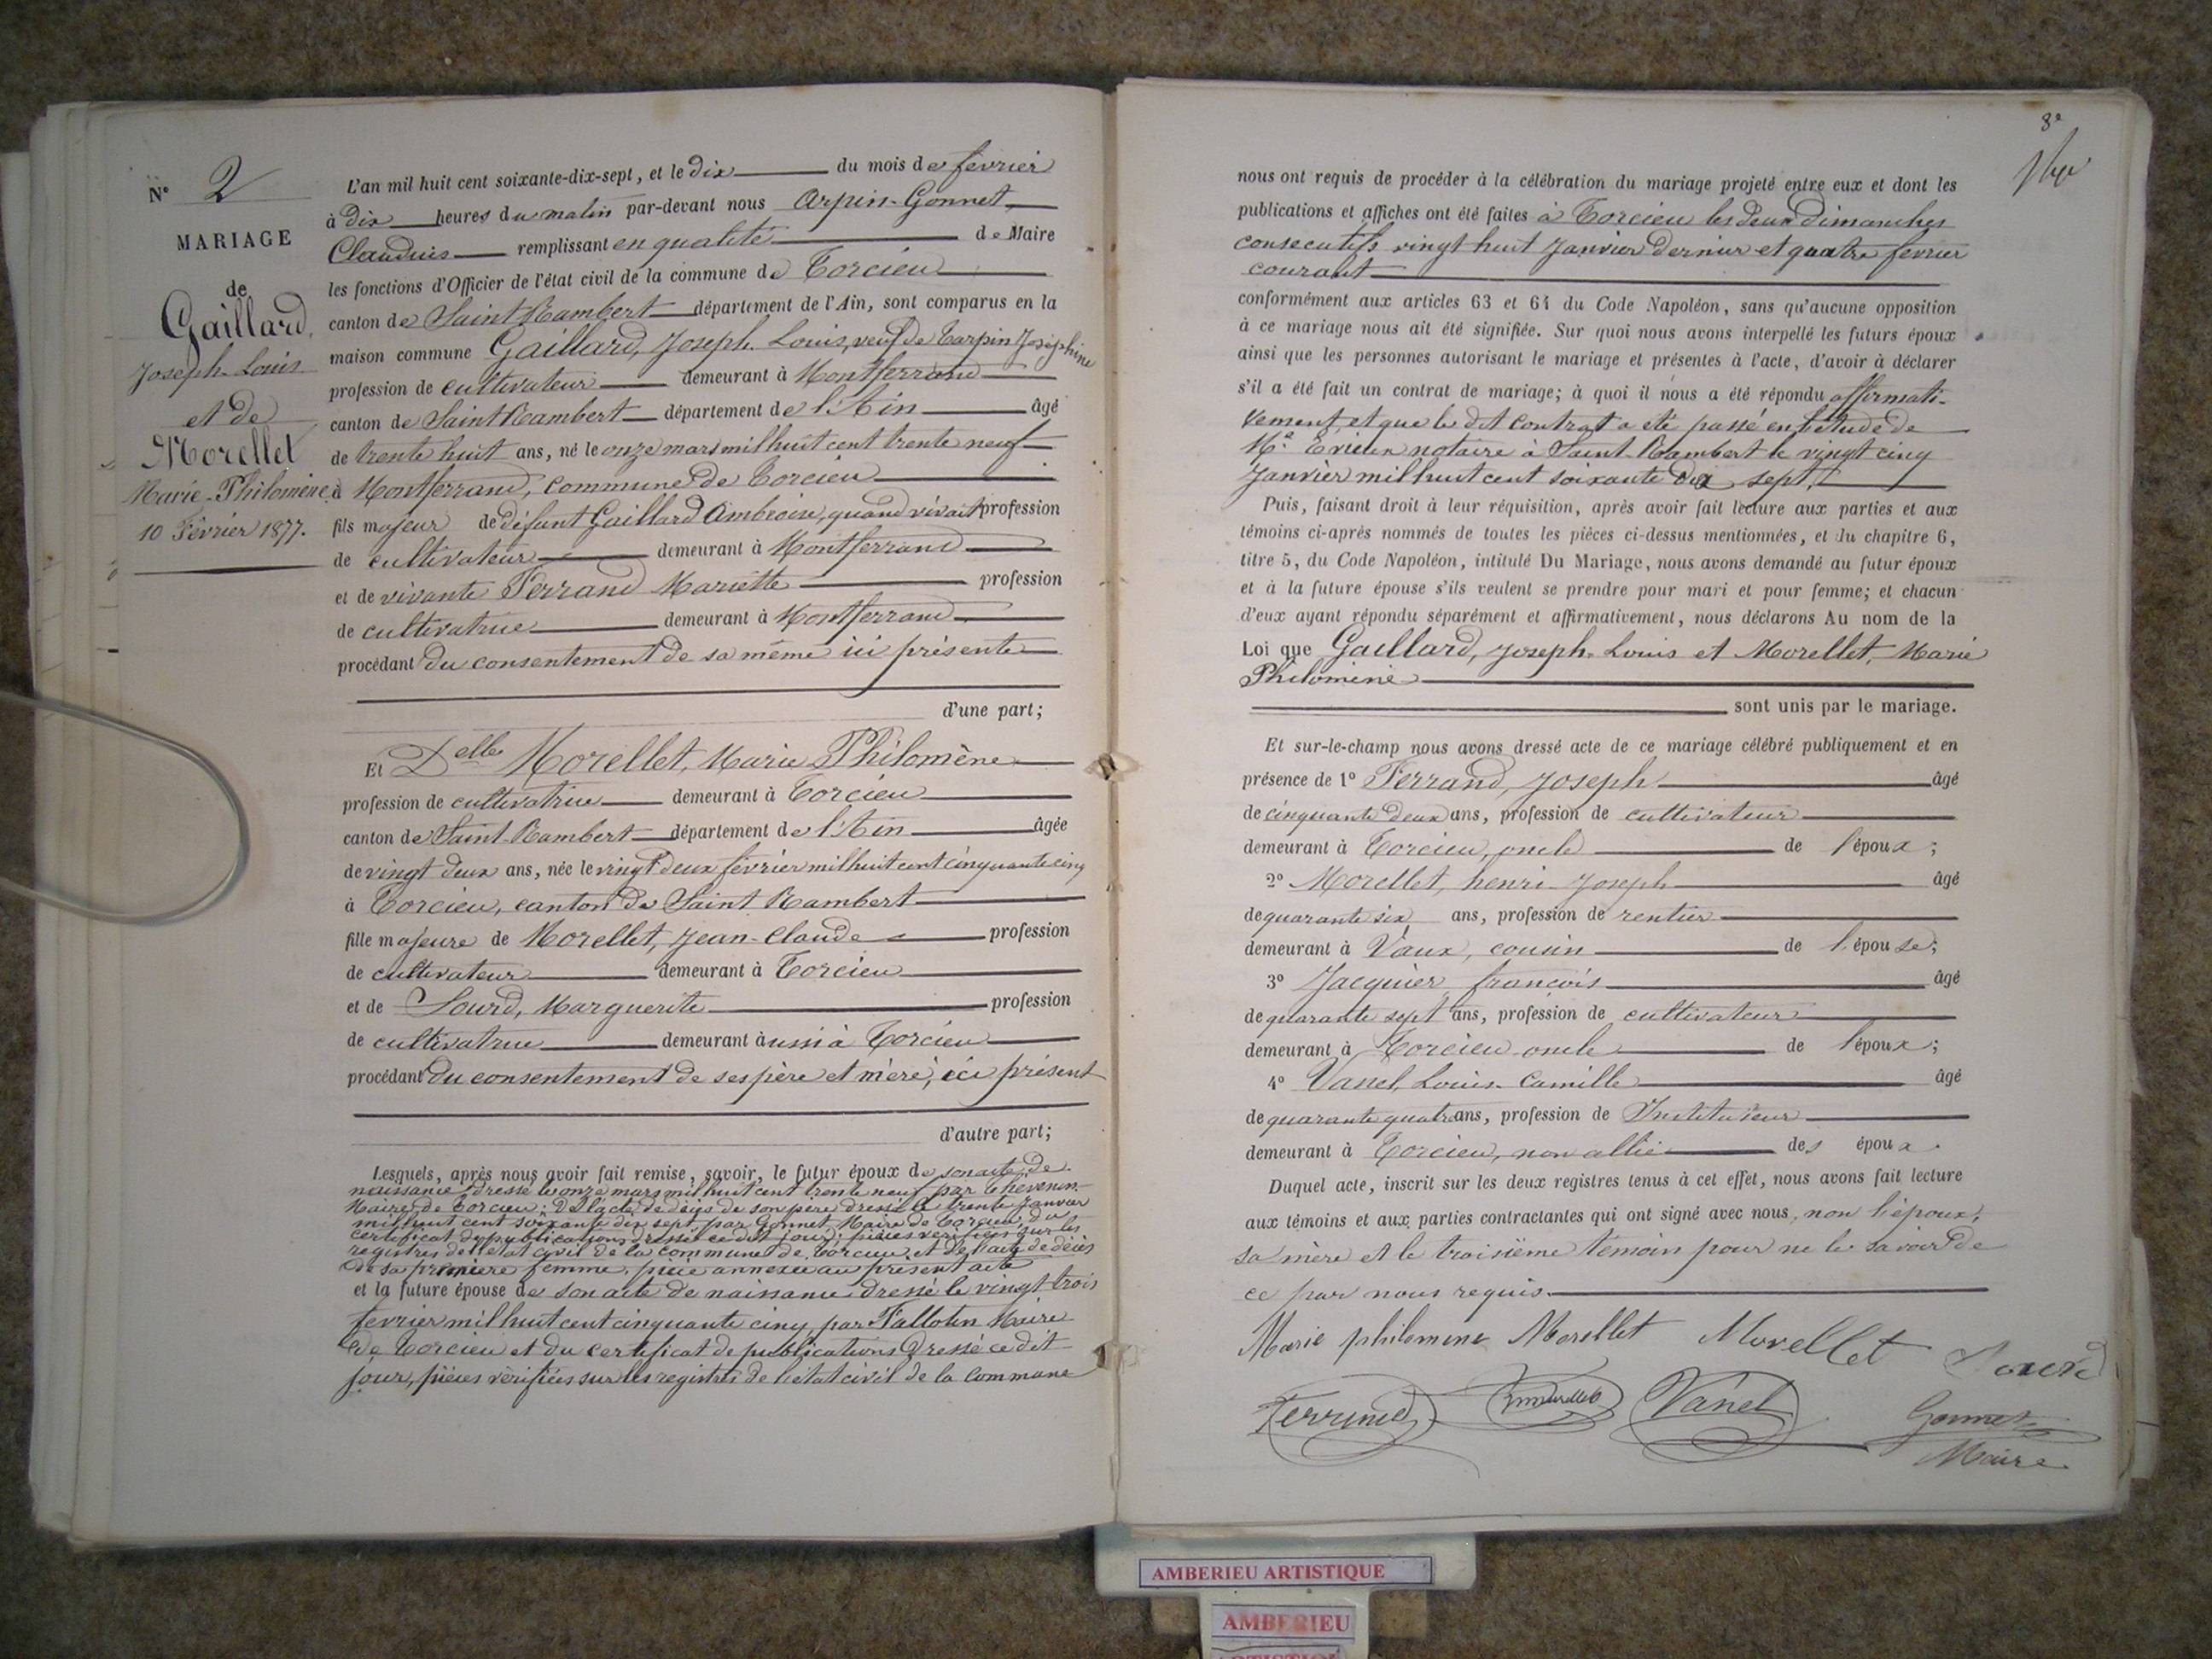 N° 2
MARIAGE
de
Gaillard,
Joseph-Louis
et de
Morellet
Marie-Philomène
10 Février 1877.
L'an mil huit cent soixante-dix-sept, et le dix du mois de février
à dix heures du matin par-devant nous Arpin-Gonnet,
Claudius remplissant en qualité de Maire
les fonctions d'Officier de l'état civil de la commune de Torcieu
canton de Saint-Rambert département de l'Ain, sont comparus en la
maison commune Gaillard, Joseph-Louis, veuf de Carpin Joséphine
profession de cultivateur demeurant à Montferrand
canton de Saint Rambert département de l'Ain âgé
de trente huit ans, né le onze mars mil huit cent trente neuf
à Montferrand, commune de Torcieu
fils majeur de défunt Gaillard Ambroise, quand vivait profession
de cultivateur demeurant à Montferrand
et de vivante Ferrand Mariette profession
de cultivatrice demeurant à Montferrand
procédant du consentement de sa mème ici présente
d'une part;
Et Delle Morellet, Marie Philomène
profession de cultivatrice demeurant à Torcieu
canton de Saint-Rambert département de l'Ain âgée
de vingt deux ans, née le vingt deux février mil huit cent cinquante cinq
à Torcieu, canton de Saint Rambert
fille majeure de Morellet, Jean-Claude profession
de cultivateur demeurant à Torcieu
et de Sourd, Marguerite profession
de cultivatrice demeurant aussi à Torcieu
procédant du consentement de ses père et mère, ici présent
d'autre part;
Lesquels, après nous avoir fait remise, savoir, le futur époux de son acte de
naissance dressé le onze mars mil huit cent trente neuf par Thévenin
Maire de Torcieu; De l'acte de décès de son père dressé le trente janvier
mil huit cent soixante dix sept par Gonnet, Maire de Torcieu, du
certificat de publications dressé ce dit jour; pièces vérifiées sur les
registres de l'état civil de la commune de Torcieu, et de l'acte de décès
de sa première femme, pièce annexée au présent acte
et la future épouse de son acte de naissance dressé le vingt trois
fevrier mil huit cent cinquante cinq par Tallotin Maire
de Torcieu et du certificat de publications dressé ce dit
jour, pièces vérifiées sur les registres de l'état civil de la Commune
8e
nous ont requis de procéder à la célébration du mariage projeté entre eux et dont les
publications et affiches ont été faites à Torcieu les deux Dimanches
consecutifs vingt huit Janvier dernier et quatre fevrier
courant
conformément aux articles 63 et 64 du Code Napoléon, sans qu'aucune opposition
à ce mariage nous ait été signifiée. Sur quoi nous avons interpellé les futurs époux
ainsi que les personnes autorisant le mariage et présentes à l'acte, d'avoir à déclarer
s'il a été fait un contrat de mariage; à quoi il nous a été répondu affirmati-
vement, et que le dit contrat a été passé en l'étude de
Me notaire à Saint-Rambert le vingt cinq
Janvier mil huit cent soixante dix sept.
Puis, faisant droit à leur réquisition, après avoir fait lecture aux parties et aux
témoins ci-après nommés de toutes les pièces ci-dessus mentionnées, et du chapitre 6,
titre 5, du Code Napoléon, intitulé Du Mariage, nous avons demandé au futur époux
et à la future épouse s'ils veulent se prendre pour mari et pour femme; et chacun
d'eux ayant répondu séparément et affirmativement, nous déclarons Au nom de la
Loi que Gaillard, Joseph-Louis et Morellet, Marie
Philomène
sont unis par le mariage.
Et sur-le-champ nous avons dressé acte de ce mariage célébré publiquement et en
présence de 1° Ferrand, Joseph âgé
de cinquante deux ans, profession de cultivateur
demeurant à Torcieu, oncle de l'époux;
2° Morellet, henri-Joseph âgé
de quarante six ans, profession de rentier
demeurant à Vaux, cousin de l'épouse;
3° Jacquier, françois âgé
de quarante sept ans, profession de cultivateur
demeurant à Torcieu oncle de l'époux;
4° Vanel, Louis-Camille âgé
de quarante quatre ans, profession de Instituteur
demeurant à Torcieu, non allié des époux.
Duquel acte, inscrit sur les deux registres tenus à cet effet, nous avons fait lecture
aux témoins et aux parties contractantes qui ont signé avec nous, non l'époux,
sa mère et le troisième témoin pour ne le savoir de
ce par nous requis.
Marie philomene Morellet Morellet Sourd
Ferrand Vanel Gonnet
Maire
AMBERIEU ARTISTIQUE
AMBERIEU
ARTISTIQUE